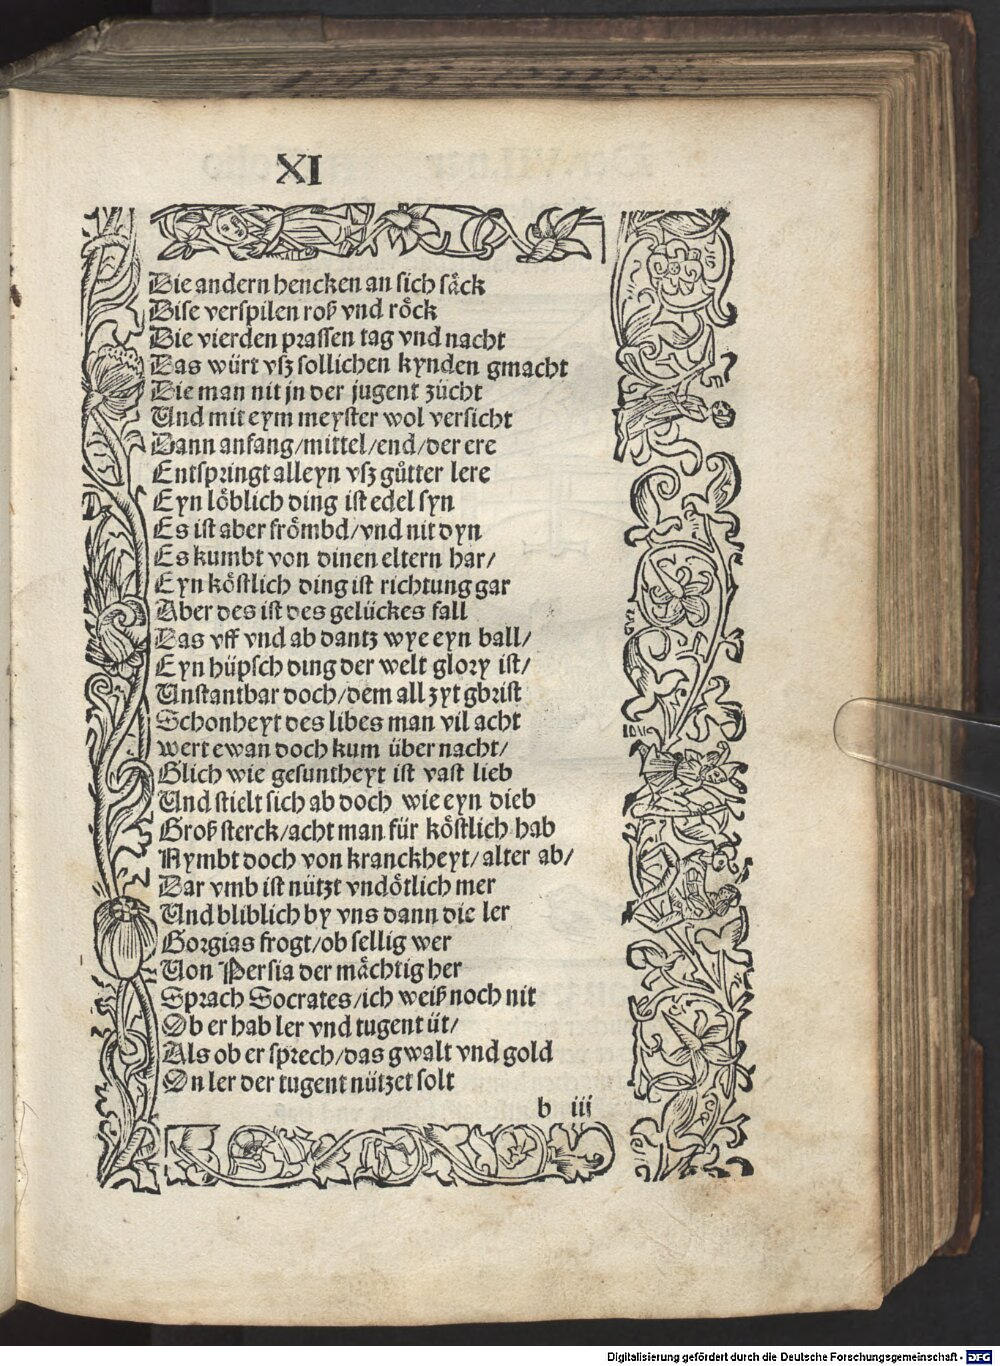 XI
Die andern hencken an sich säck
Dise verspilen roß vnd röck
Die vierden prassen tag vnd nacht
Das würt vſz sollichen kynden gmacht
Die man nit jn der jugent zücht
Und mit eym meyster wol versicht
Dann anfang/mittel/end/der ere
Entspringt alleyn vſz gůtter lere
Eyn löblich ding ist edel syn
Es ist aber frömbd/vnd nit dyn
Es kumbt von dinen eltern har/
Eyn köstlich ding ist richtung gar
Aber des ist des gelückes fall
Das vff vnd ab dantz wye eyn ball/
Eyn hüpsch ding der welt glory ist/
Unstantbar doch/dem all zyt gbrist
Schonheyt des libes man vil acht
wert ewan doch kum über nacht/
Glich wie gesuntheyt ist vast lieb
Und stielt sich ab doch wie eyn dieb
Groß sterck/acht man für köstlich hab
Nymbt doch von kranckheyt/alter ab/
Dar vmb ist nützt vndötlich mer
Und bliblich by vns dann die ler
Gorgias frogt/ob sellig wer
Uon Persia der mächtig her
Sprach Socrates/ich weiß noch nit
Ob er hab ler vnd tugent üt/
Als ob er sprech/das gwalt vnd gold
On ler der tugent nützet solt
b iii
Digitalisierung gefördert durch die Deutsche Forschungsgemeinschaft - DFG